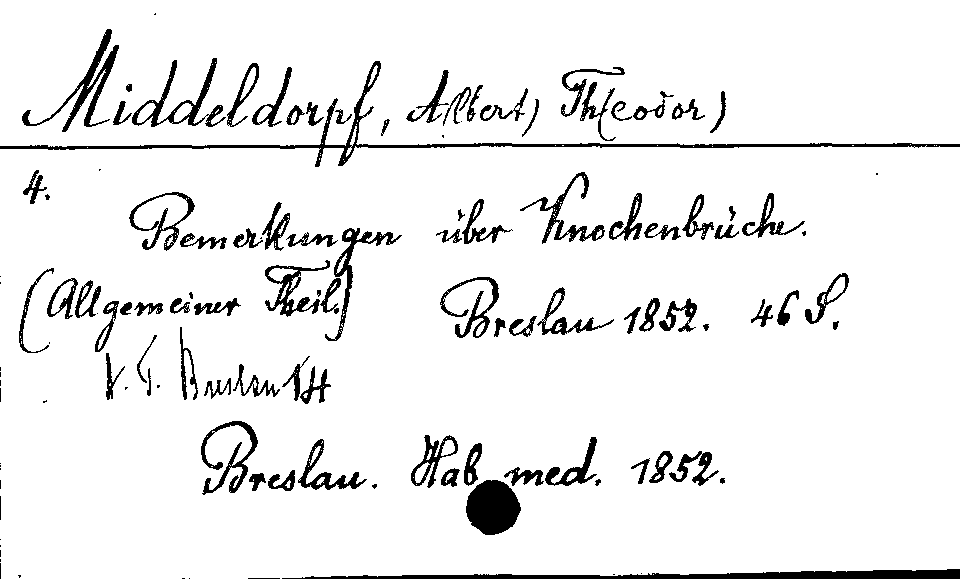 Middeldorpf, A(lbert) Th(eodor)
4.
Bemerkungen über Knochenbrüche.
(Allgemeiner Theil.) Breslau 1852. 46 S.
Breslau
Breslau. Hab. med. 1852.